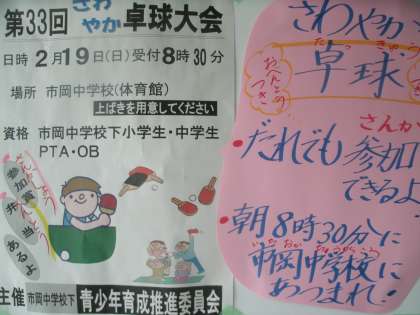 第33回 さわやか 卓球大会
日時 2月19日(日)受付8時30分
場所 市岡中学校(体育館)
上ばきを用意してください
資格 市岡中学校下小学生・中学生
PTA・OB
参加賞
弁当
あるよ
主催 市岡中学校下 青少年育成推進委員会
さわやか
たっきゅう
卓球
おべんとう
つき
さんか
・だれでも参加
できるよ
・朝8時30分に
いちおかちゅうがっこう
市岡中学校に
あつまれ!